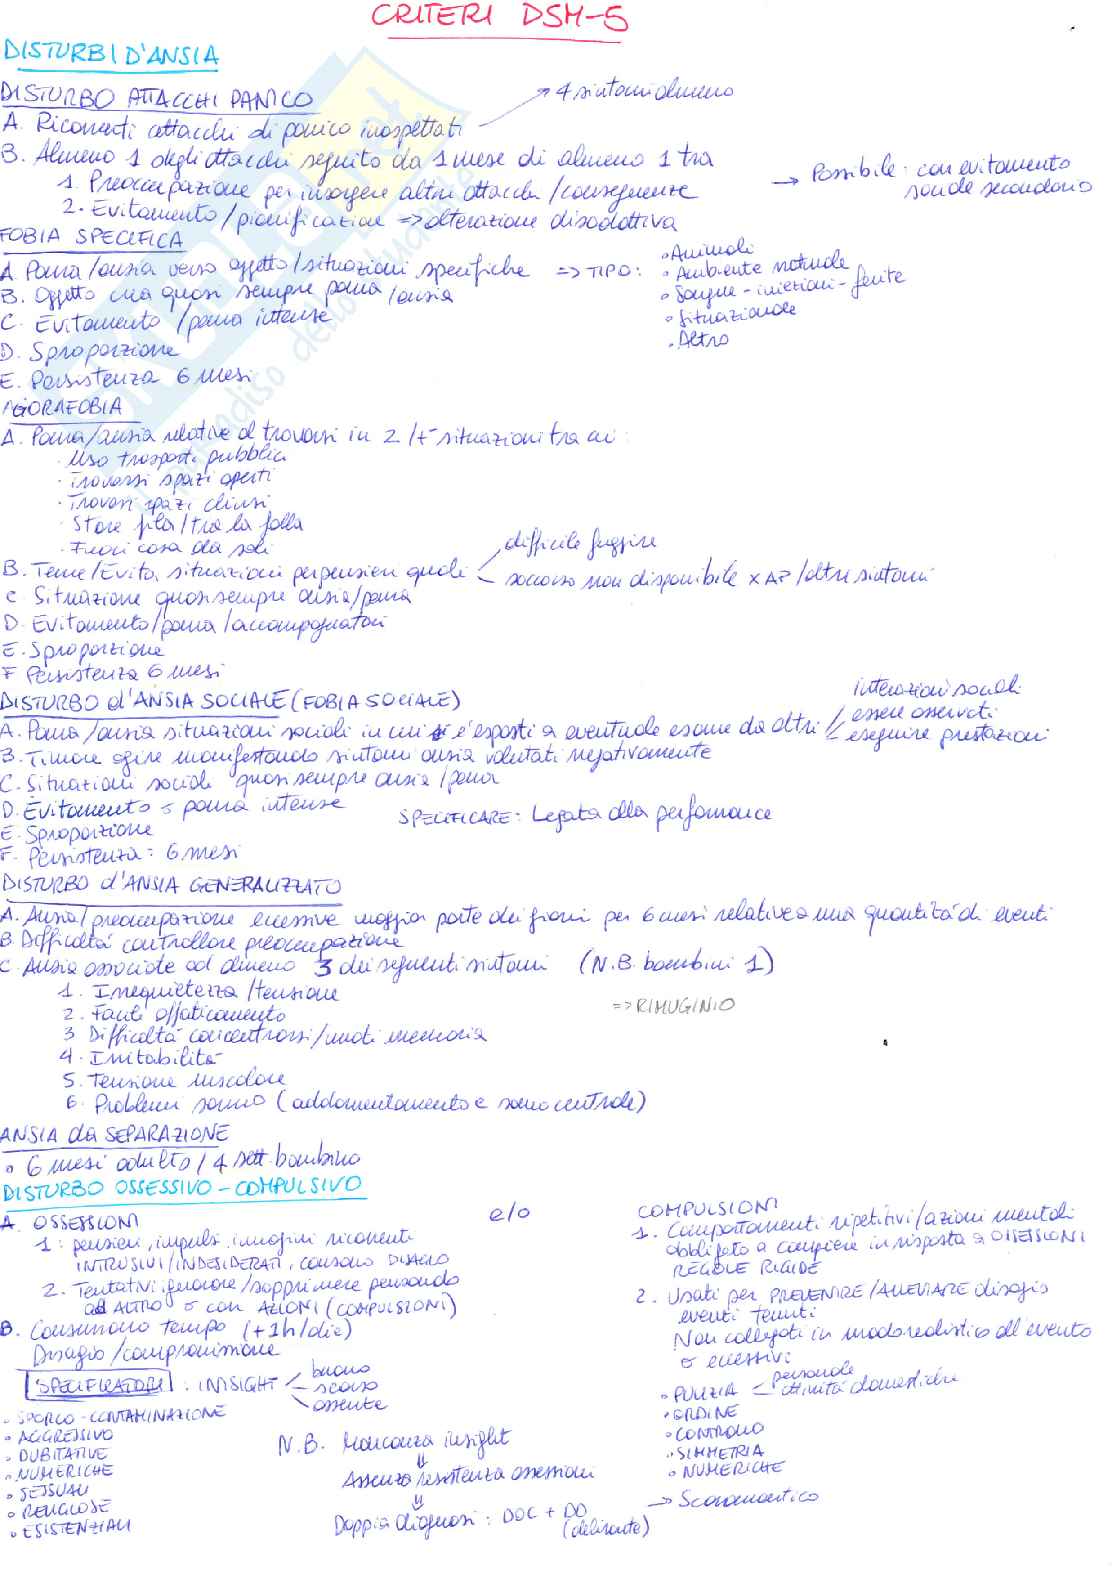 CRITERI DSM-5
DISTURBI D'ANSIA
DISTURBO ATTACCHI PANICO
→ 4 sintomi almeno
A. Ricorrenti attacchi di panico inaspettati
B. Almeno 1 degli attacchi seguito da 1 mese di almeno 1 tra
1. Preoccupazione per insorgere altri attacchi/conseguenze
→ Possibile: con evitamento
sociale secondario
2. Evitamento/pianificazione => alterazione disadattiva
FOBIA SPECIFICA
A. Paura/ansia verso oggetto/situazioni specifiche => TIPO:
• Animali
• Ambiente naturale
• Sangue-iniezioni-ferite
• Situazionale
• Altro
B. Oggetto crea quasi sempre paura/ansia
C. Evitamento/paura intense
D. Sproporzione
E. Persistenza 6 mesi
AGORAFOBIA
A. Paura/ansia relative al trovarsi in 2/+ situazioni tra cui:
· Uso trasporti pubblici
· Trovarsi spazi aperti
· Trovarsi spazi chiusi
· Stare fila/tra la folla
· Fuori casa da soli
B. Teme/Evita situazioni per pensieri quali
difficile fuggire
soccorso non disponibile x AP/altri sintomi
C. Situazione quasi sempre ansia/paura
D. Evitamento/paura/accompagnatori
E. Sproporzione
F Persistenza 6 mesi
DISTURBO d'ANSIA SOCIALE (FOBIA SOCIALE)
A. Paura/ansia situazioni sociali in cui si è esposti a eventuale esame da altri
interazioni sociali
essere osservati
eseguire prestazioni
B. Timore agire manifestando sintomi ansia valutati negativamente
C. Situazioni sociali quasi sempre ansia/paura
D. Evitamento o paura intense
SPECIFICARE: Legata alla performance
E. Sproporzione
F. Persistenza: 6 mesi
DISTURBO d'ANSIA GENERALIZZATO
A. Ansia/preoccupazione eccessive maggior parte dei giorni per 6 mesi relative a una quantità di eventi
B. Difficoltà controllare preoccupazione
C. Ansia associate ad almeno 3 dei seguenti sintomi (N.B. bambini 1)
1. Irrequietezza/tensione
=> RIMUGINIO
2. Facili affaticamento
3 Difficoltà concentrarsi/vuoti memoria
4. Irritabilità
5. Tensione muscolare
6. Problemi sonno (addormentamento e sonno centrale)
ANSIA da SEPARAZIONE
• 6 mesi adulto/4 sett. bambino
DISTURBO OSSESSIVO-COMPULSIVO
A. OSSESSIONI
e/o
COMPULSIONI
1: pensieri, impulsi, immagini ricorrenti
INTRUSIVI/INDESIDERATI, causano DISAGIO
2. Tentativi ignorare/sopprimere pensando
ad ALTRO o con AZIONI (COMPULSIONI)
1. Comportamenti ripetitivi/azioni mentali
obbligato a compiere in risposta a OSSESSIONI
REGOLE RIGIDE
2. Usati per PREVENIRE/ALLEVIARE disagio
eventi temuti
Non collegati in modo realistico all'evento
o eccessivi
B. Consumano tempo (+1h/die)
Disagio/compromissione
SPECIFICATORI: INSIGHT
buono
scarso
assente
• SPORCO-CONTAMINAZIONE
• AGGRESSIVO
• DUBITATIVE
• NUMERICHE
• SESSUALI
• RELIGIOSE
• ESISTENZIALI
• PULIZIA
personale
attività domestiche
• ORDINE
• CONTROLLO
• SIMMETRIA
• NUMERICHE
→ Scaramantico
N.B. Mancanza insight
⇓
Assenza resistenza ossessioni
⇓
Doppia diagnosi: DOC + DD
(delirante)